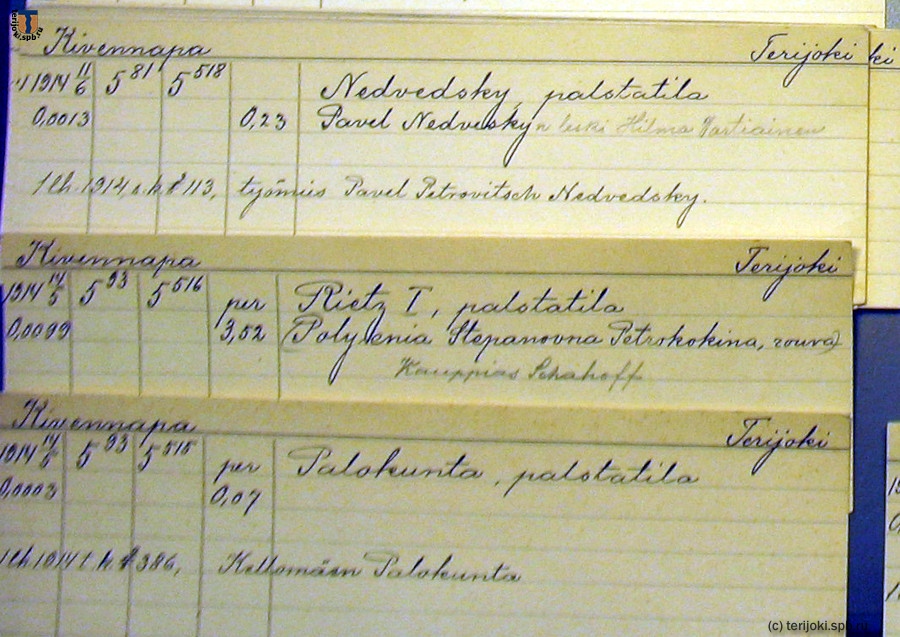 Kivennapa Terijoki ki
1914 11/6 5 81 5 518 Nedvedsky, palstatila
0,0013 0,23 Pavel Nedveskyn leski Hilma
1 lh. 1914, s.k # 113, työmies Pavel Petrovitsch Nedvedsky.
Kivennapa Terijoki
1914 14/5 5 93 5 516 per Rietz I, palstatila
0,0099 3,52 (Polyksenia Stepanovna Petrokokina, rouva)
Kauppias Schahoff
Kivennapa Terijoki
1914 14/5 5 93 5 515 per Palokunta, palstatila
0,0003 0,07
1 lh 1914 l.k # 386, Kellomäen Palokunta
(c) terijoki.spb.ru
terijoki.spb.ru